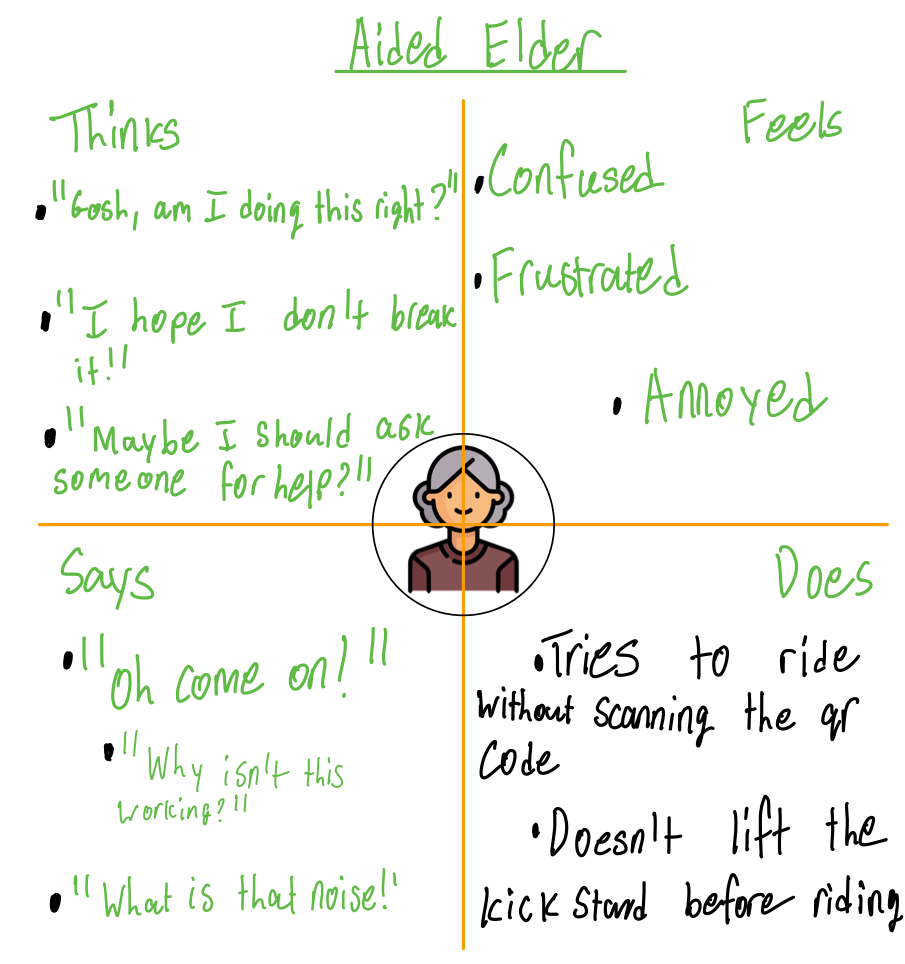 Aided Elder
Thinks
• "Gosh, am I doing this right?"
• "I hope I don't break
it!"
• "Maybe I should ask
someone for help?"
Feels
• Confused
• Frustrated
• Annoyed
Says
• "Oh come on!"
• "Why isn't this
working?"
• "What is that noise!"
Does
• Tries to ride
without scanning the qr
code
• Doesn't lift the
kick stand before riding